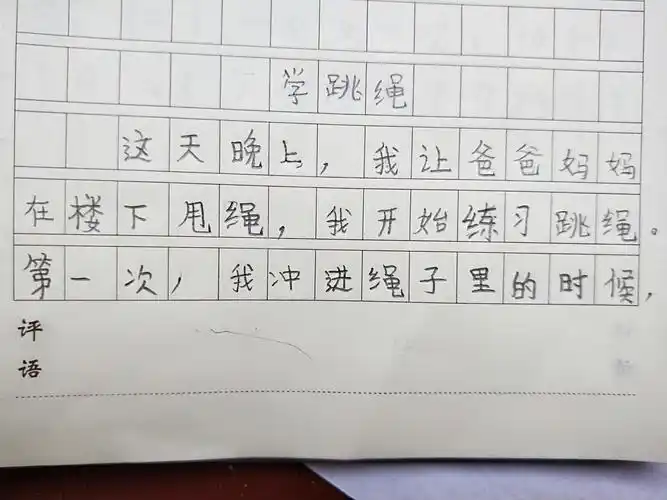 学跳绳
这天晚上，我让爸爸妈妈
在楼下甩绳，我开始练习跳绳。
第一次，我冲进绳子里的时候，
评
语